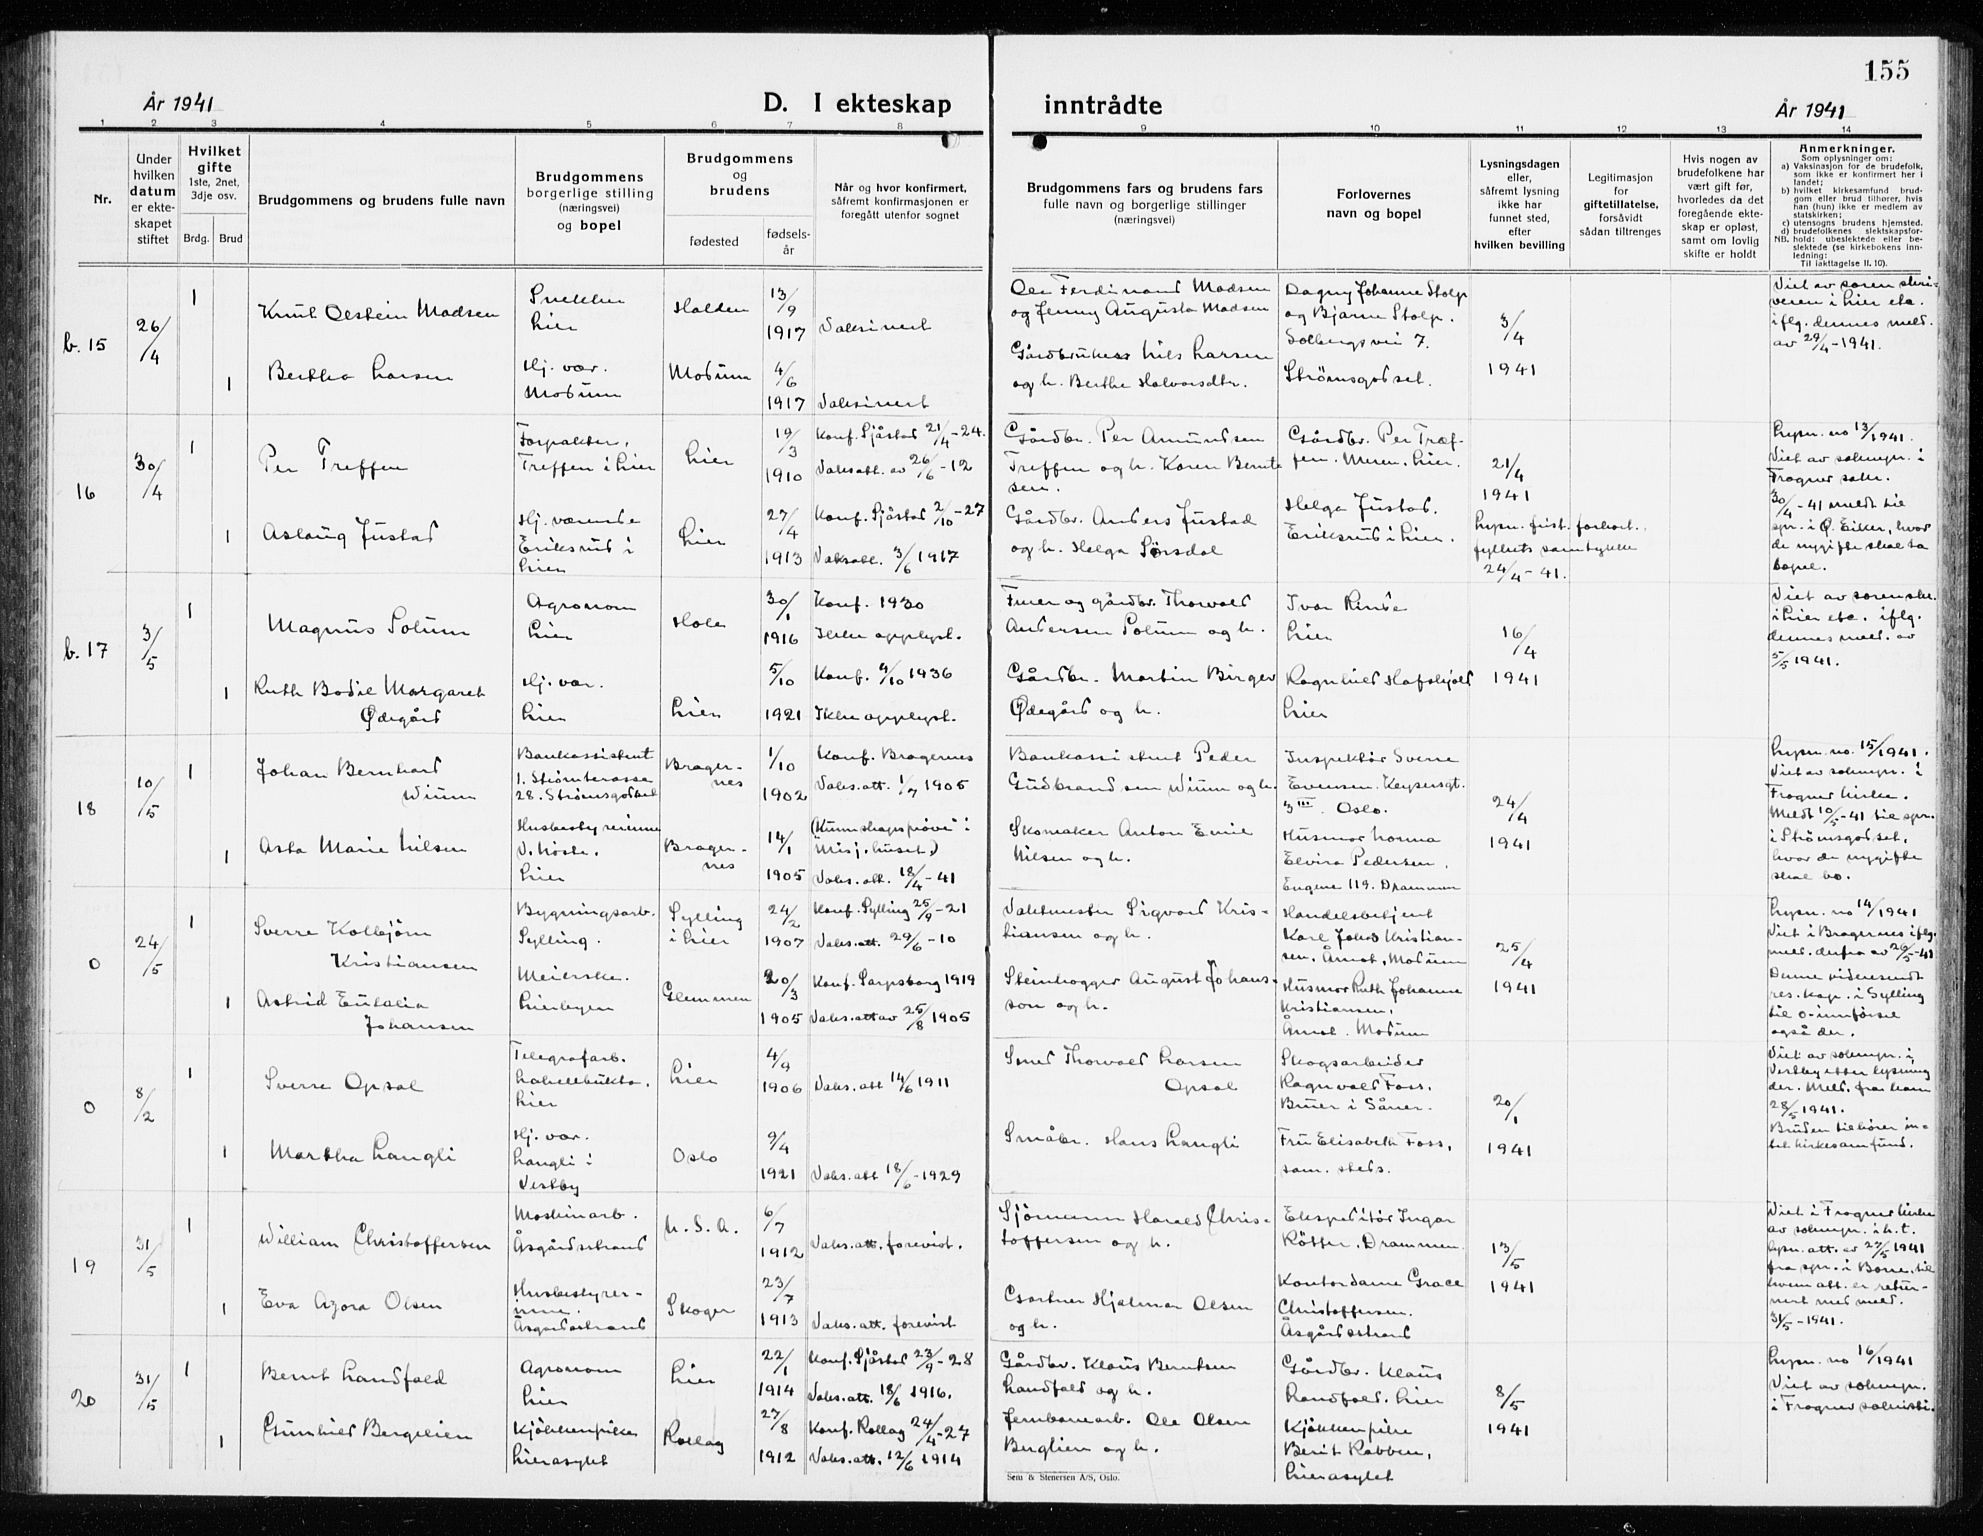 155
År 1941
D. I ekteskap
inntrådte
År 1941
1 2 3 4 5 6 7 8 9 10 11 12 13 14
Nr.
Under
hvilken
datum
er ekte-
skapet
stiftet
Hvilket
gifte
1ste, 2net,
3dje osv.
Brdg. Brud
Brudgommens og brudens fulle navn
Brudgommens
borgerlige stilling
(næringsvei)
og bopel
Brudgommens
og
brudens
fødested
fødsels-
år
Når og hvor konfirmert,
såfremt konfirmasjonen er
foregått utenfor sognet
Brudgommens fars og brudens fars
fulle navn og borgerlige stillinger
(næringsvei)
Forlovernes
navn og bopel
Lysningsdagen
eller,
såfremt lysning
ikke har
funnet sted,
efter
hvilken bevilling
Legitimasjon
for
giftetillatelse,
forsåvidt
sådan tiltrenges
Hvis nogen av
brudefolkene har
vært gift før,
hvorledes da det
foregående ekte-
skap er opløst,
samt om lovlig
skifte er holdt
Anmerkninger.
Som oplysninger om:
a) Vaksinasjon for de brudefolk,
som ikke er konfirmert her i
landet;
b) hvilket kirkesamfund brud-
gom eller brud tilhører, hvis
han (hun) ikke er medlem av
statskirken;
c) utensogns brudens hjemsted.
d) brudefolkenes slektskapsfor-
NB. hold: ubeslektede eller be-
slektede (se kirkebokens inn-
ledning:
Til iakttagelse II. 10).
b. 15
26/4
1
Knut Oistein Madsen
Snekker
Lier
Halden
13/9
1917
Vaksinert
Ole Ferdinand Madsen
og Jenny Augusta Madsen
Dagny Johanne Stolp
og Bjarne Stolp.
Solbergsvei 7.
Strømsgodset.
3/4
1941
Viet av soren skri-
veren i Lier etc.
iflg. dennes meld.
av 29/4-1941.
1
Bertha Larsen
Hj. vær.
Modum
Modum
4/6
1917
Vaksinert
Gårdbruker Nils Larsen
og h. Berthe Halvorsdtr.
16
30/4
1
Per Treffen
Forpakter,
Treffen i Lier
Lier
19/3
1910
Konf. Sjåstad 21/4-24.
Vaks.att. av 26/6-12
Gårdbr. Per Amundsen
Treffen og h. Karen Bernt-
sen.
Gårdbr. Per Træf-
fen. Meren, Lier.
21/4
1941
Lysn. no 13/1941.
Viet av soknepr. i
Frogner sokn.
30/4-41 meldt til
spr. i Ø. Eiker, hvor
de nygifte skal ta
bopel.
1
Aslaug Justad
Hj. værende
Eriksrud i
Lier
Lier
27/4
1913
Konf. Sjåstad 2/10-27
Vaksatt. 3/6 1917
Gårdbr. Anders Justad
og h. Helga Sørsdal
Helga Justad.
Eriksrud i Lier.
Lysn. frist forkort.
fylkets samtykke
24/4-41.
b. 17
3/5
1
Magnus Solum
Agronom
Lier
Hole
30/1
1916
Konf. 1930
Ikke opplyst.
Furer og gårdbr. Thorvald
Andersen Solum og h.
Ivar Rinde
Lier
16/4
1941
Viet av sorenskr.
i Lier etc. iflg.
dennes meld. av
5/5 1941.
1
Ruth Bodil Margaret
Ødegård
Hj. vær.
Lier
Lier
5/10
1921
Konf. 4/10 1936
Ikke opplyst.
Gårdbr. Martin Birger
Ødegård og h.
Ragnhild Hafskjold
Lier
18
10/5
1
Johan Bernhard
Wium
Bankassistent
1. Strømterasse
28. Strømsgodset
Brager-
nes
1/10
1902
Konf. Bragernes
Vaks.att. 1/7 1905
Bankassistent Peder
Gudbrandsen Wium og h.
Inspektør Sverre
Evensen. Keysersgt.
3 III Oslo.
24/4
1941
Lysn. no. 15/1941.
Viet av soknepr. i
Frogner kirke.
Meldt 10/5-41 til spr.
i Strømsgodset,
hvor de nygifte
skal bo.
1
Asta Marie Nilsen
Husbestyrerinne
V. Noste.
Lier
Brager-
nes
14/1
1905
(Kunnskapsprøve i
Misj.huset.)
Vaks. att. 18/4-41
Skomaker Anton Emil
Nilsen og h.
Husmor Norma
Elvira Pedersen.
Engene 119. Drammen
0
24/5
1
Sverre Kolbjørn
Kristiansen
Bygningsarb.
Sylling.
Sylling
i Lier
24/2
1907
Konf. Sylling 25/9-21
Vaks. att. 29/6-10
Vaktmester Sigvard Kris-
tiansen og h.
Handelsbetjent
Karl Johs Kristian-
sen, Åmot, Modum
25/4
1941
Lysn. no 14/1941
Viet i Bragernes iflg.
meld. derfra av 26/5-41
Denne videresendt
res. kap. i Sylling
til 0-innførsel
også der.
1
Astrid Eulalia
Johansen
Meierske.
Lierbyen
Glemmen
20/3
1905
Konf. Sarpsborg 1919
Vaks.att av 25/8 1905
Steinhogger August Johans-
son og h.
Husmor Ruth Johanne
Kristiansen,
Åmot. Modum
0
8/2
1
Sverre Opsal
Telegrafarb.
Lahellebukta.
Lier
Lier
4/9
1906
Vaks. att 14/6 1911
Smed Thorvald Larsen
Opsal
Skogsarbeider
Ragnvald Foss.
Bruer i Såner.
20/1
1941
Viet av sokmpr. i
Vestby etter lysning
der. Meld. fra ham
28/5 1941.
Bruden tilhører in-
tet kirkesamfund.
1
Martha Langli
Hj. vær.
Langli i
Vestby
Oslo
9/4
1921
Vaks. att 18/6-1929
Småbr. Hans Langli
Fru Elisabeth Foss,
sam. steds.
19
31/5
1
William Christoffersen
Maskinarb.
Åsgårdstrand
U.S.A.
6/7
1912
Vaks. att. forevist.
Sjömann Harald Chris-
toffersen og h.
Ekspeditør Ingar
Røtter. Drammen.
13/5
1941
Viet i Frogner kirke
av sokmpr. i h.t.
lysn. att. av 27/5 1941
fra spr. i Borre, til
hvem att. er retur-
nert med meld.
31/5-1941.
1
Eva Azora Olsen
Husbestyrer-
inne.
Åsgårdstrand
Skoger
23/7
1913
Vaks. att. forevist
Gartner Hjalmar Olsen
og h.
Kontordame Grace
Christoffersen.
Åsgårdstrand
20
31/5
1
Bernt Landfald
Agronom
Lier
Lier
22/1
1914
Konf. Sjåstad 23/9-28
Vaks. att. 18/6 1916.
Gårdbr. Klaus Berntsen
Landfald og h.
Gårdbr. Klaus
Landfald, Lier
8/5
1941
Lysn. no 16/1941
Viet av soknepr.
i Frogner sakristi.
1
Gunhild Bergelien
Kjøkkenpike
Lierasylet
Rollag
27/8
1912
Konf. Rollag 24/4-27
Vaks. att. 12/6 1914
Jernbanearb. Ole Olsen
Berglien og h.
Kjøkkenpike
Berit Rabben,
Lierasylet
Sem & Stenersen A/S, Oslo.